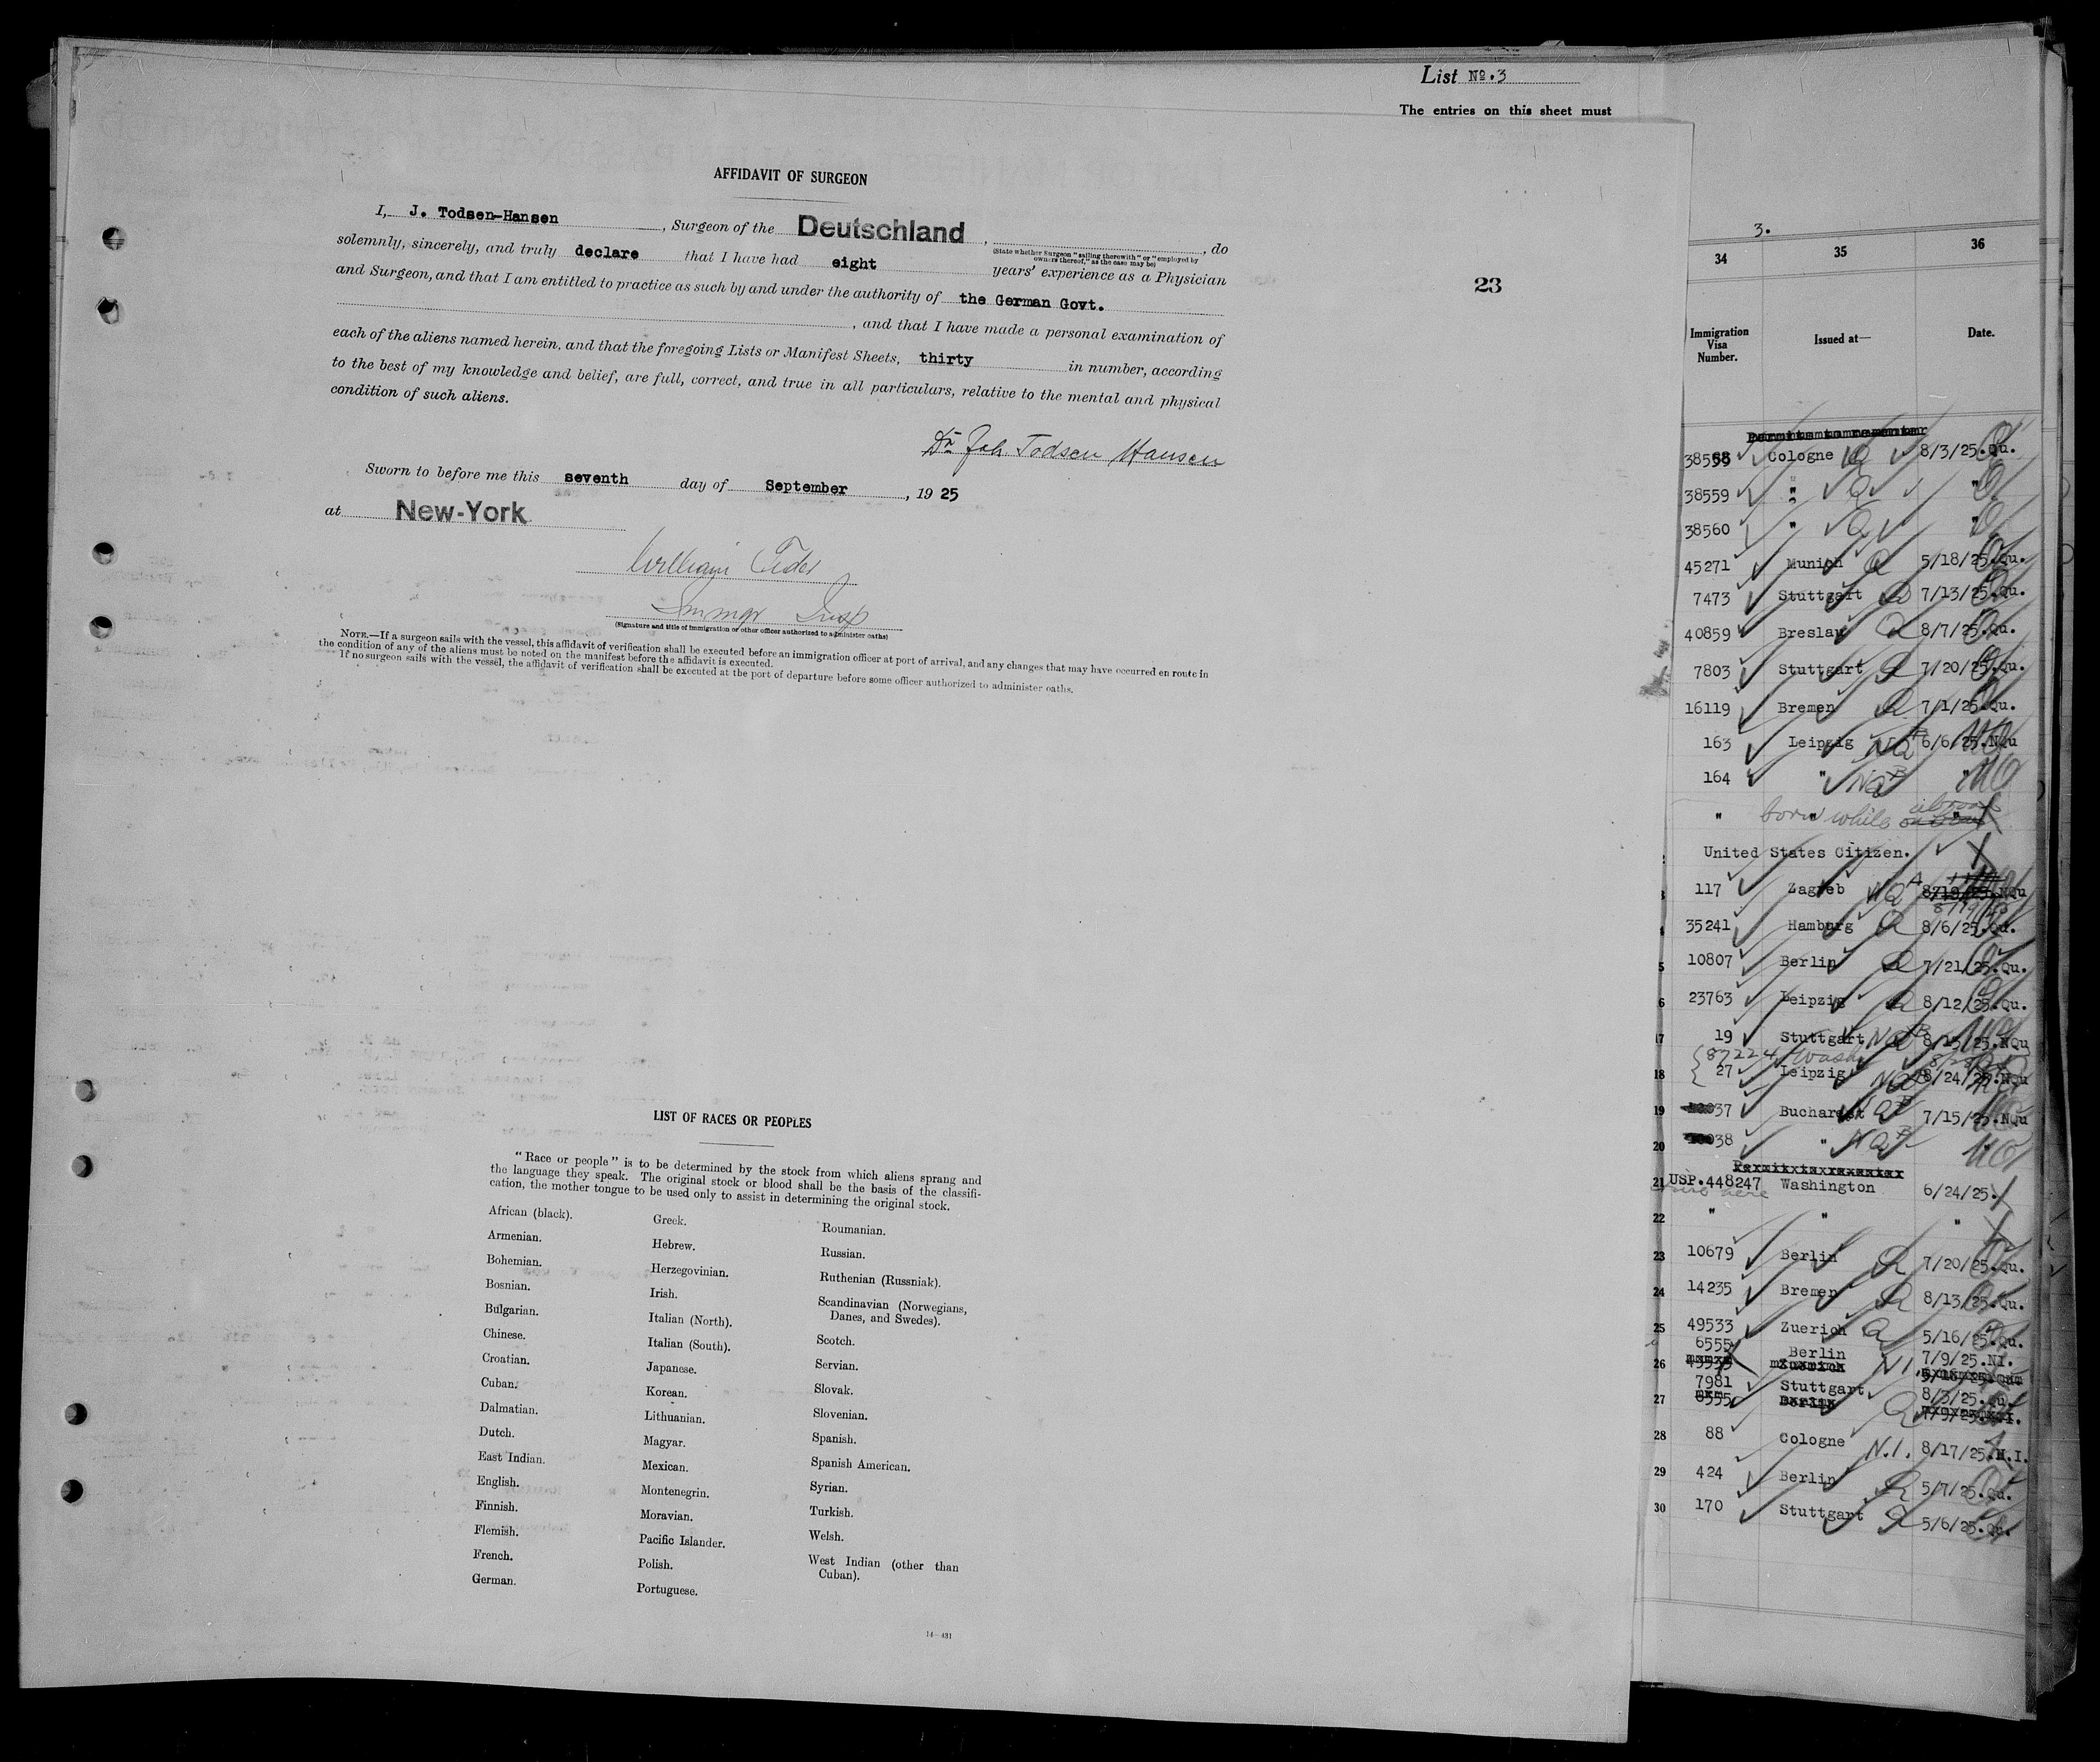 List No. 3
The entries on this sheet must
AFFIDAVIT OF SURGEON
I, J. Todsen-Hansen, Surgeon of the Deutschland, , do
(State whether Surgeon "sailing therewith" or "employed by
owners thereof," as the case may be)
solemnly, sincerely, and truly declare that I have had eight years' experience as a Physician
and Surgeon, and that I am entitled to practice as such by and under the authority of the German Govt.
, and that I have made a personal examination of
each of the aliens named herein, and that the foregoing Lists or Manifest Sheets, thirty in number, according
to the best of my knowledge and belief, are full, correct, and true in all particulars, relative to the mental and physical
condition of such aliens.
23
Dr Joh. Todsen Hansen
Sworn to before me this seventh day of September, 1925
at New-York
William
Immgr Insp
(Signature and title of immigration or other officer authorized to administer oaths)
NOTE.—If a surgeon sails with the vessel, this affidavit of verification shall be executed before an immigration officer at port of arrival, and any changes that may have occurred en route in
the condition of any of the aliens must be noted on the manifest before the affidavit is executed.
If no surgeon sails with the vessel, the affidavit of verification shall be executed at the port of departure before some officer authorized to administer oaths.
LIST OF RACES OR PEOPLES
"Race or people" is to be determined by the stock from which aliens sprang and
the language they speak. The original stock or blood shall be the basis of the classifi-
cation, the mother tongue to be used only to assist in determining the original stock.
African (black).
Armenian.
Bohemian.
Bosnian.
Bulgarian.
Chinese.
Croatian.
Cuban.
Dalmatian.
Dutch.
East Indian.
English.
Finnish.
Flemish.
French.
German.
Greek.
Hebrew.
Herzegovinian.
Irish.
Italian (North).
Italian (South).
Japanese.
Korean.
Lithuanian.
Magyar.
Mexican.
Montenegrin.
Moravian.
Pacific Islander.
Polish.
Portuguese.
Roumanian.
Russian.
Ruthenian (Russniak).
Scandinavian (Norwegians,
Danes, and Swedes).
Scotch.
Servian.
Slovak.
Slovenian.
Spanish.
Spanish American.
Syrian.
Turkish.
Welsh.
West Indian (other than
Cuban).
14—431
3.
34 35 36
Immigration
Visa
Number.
Issued at—
Date.
Permits to reenter
38558 Cologne Q 8/3/25.Qu.
38559 " Q "
38560 " Q "
45271 Munich Q 5/18/25.Qu.
7473 Stuttgart Q 7/13/25.Qu.
40859 Breslau Q 8/7/25.Qu.
7803 Stuttgart Q 7/20/25.Qu.
16119 Bremen Q 7/1/25.Qu.
163 Leipzig NQ 6/6/25.NQu
164 " NQ "
" born while abroad
United States Citizen.
117 Zagreb NQ 8/19/25.NQu
8/19/25
35241 Hamburg Q 8/6/25.Qu.
5 10807 Berlin Q 7/21/25.Qu.
6 23763 Leipzig Q 8/12/25.Qu.
17 19 Stuttgart NQ 8/15/25.NQu
87224 Wash
18 27 Leipzig NQ 8/24/25.NQu
19 37 Bucharest NQ 7/15/25.NQu
20 38 " NQ
Permit to reenter
21 USP.448247 Washington 6/24/25.
22 " " "
23 10679 Berlin Q 7/20/25.Qu.
24 14235 Bremen Q 8/13/25.Qu.
25 49533 Zuerich Q 5/16/25.Qu.
6555 Berlin 7/9/25.NI.
26 Zuerich N.I.
7981 Stuttgart 8/3/25.Qu.
27 6555 Berlin Q 7/9/25.N.I.
28 88 Cologne N.I. 8/17/25.N.I.
29 424 Berlin Q 5/7/25.Qu.
30 170 Stuttgart Q 5/6/25.Qu.